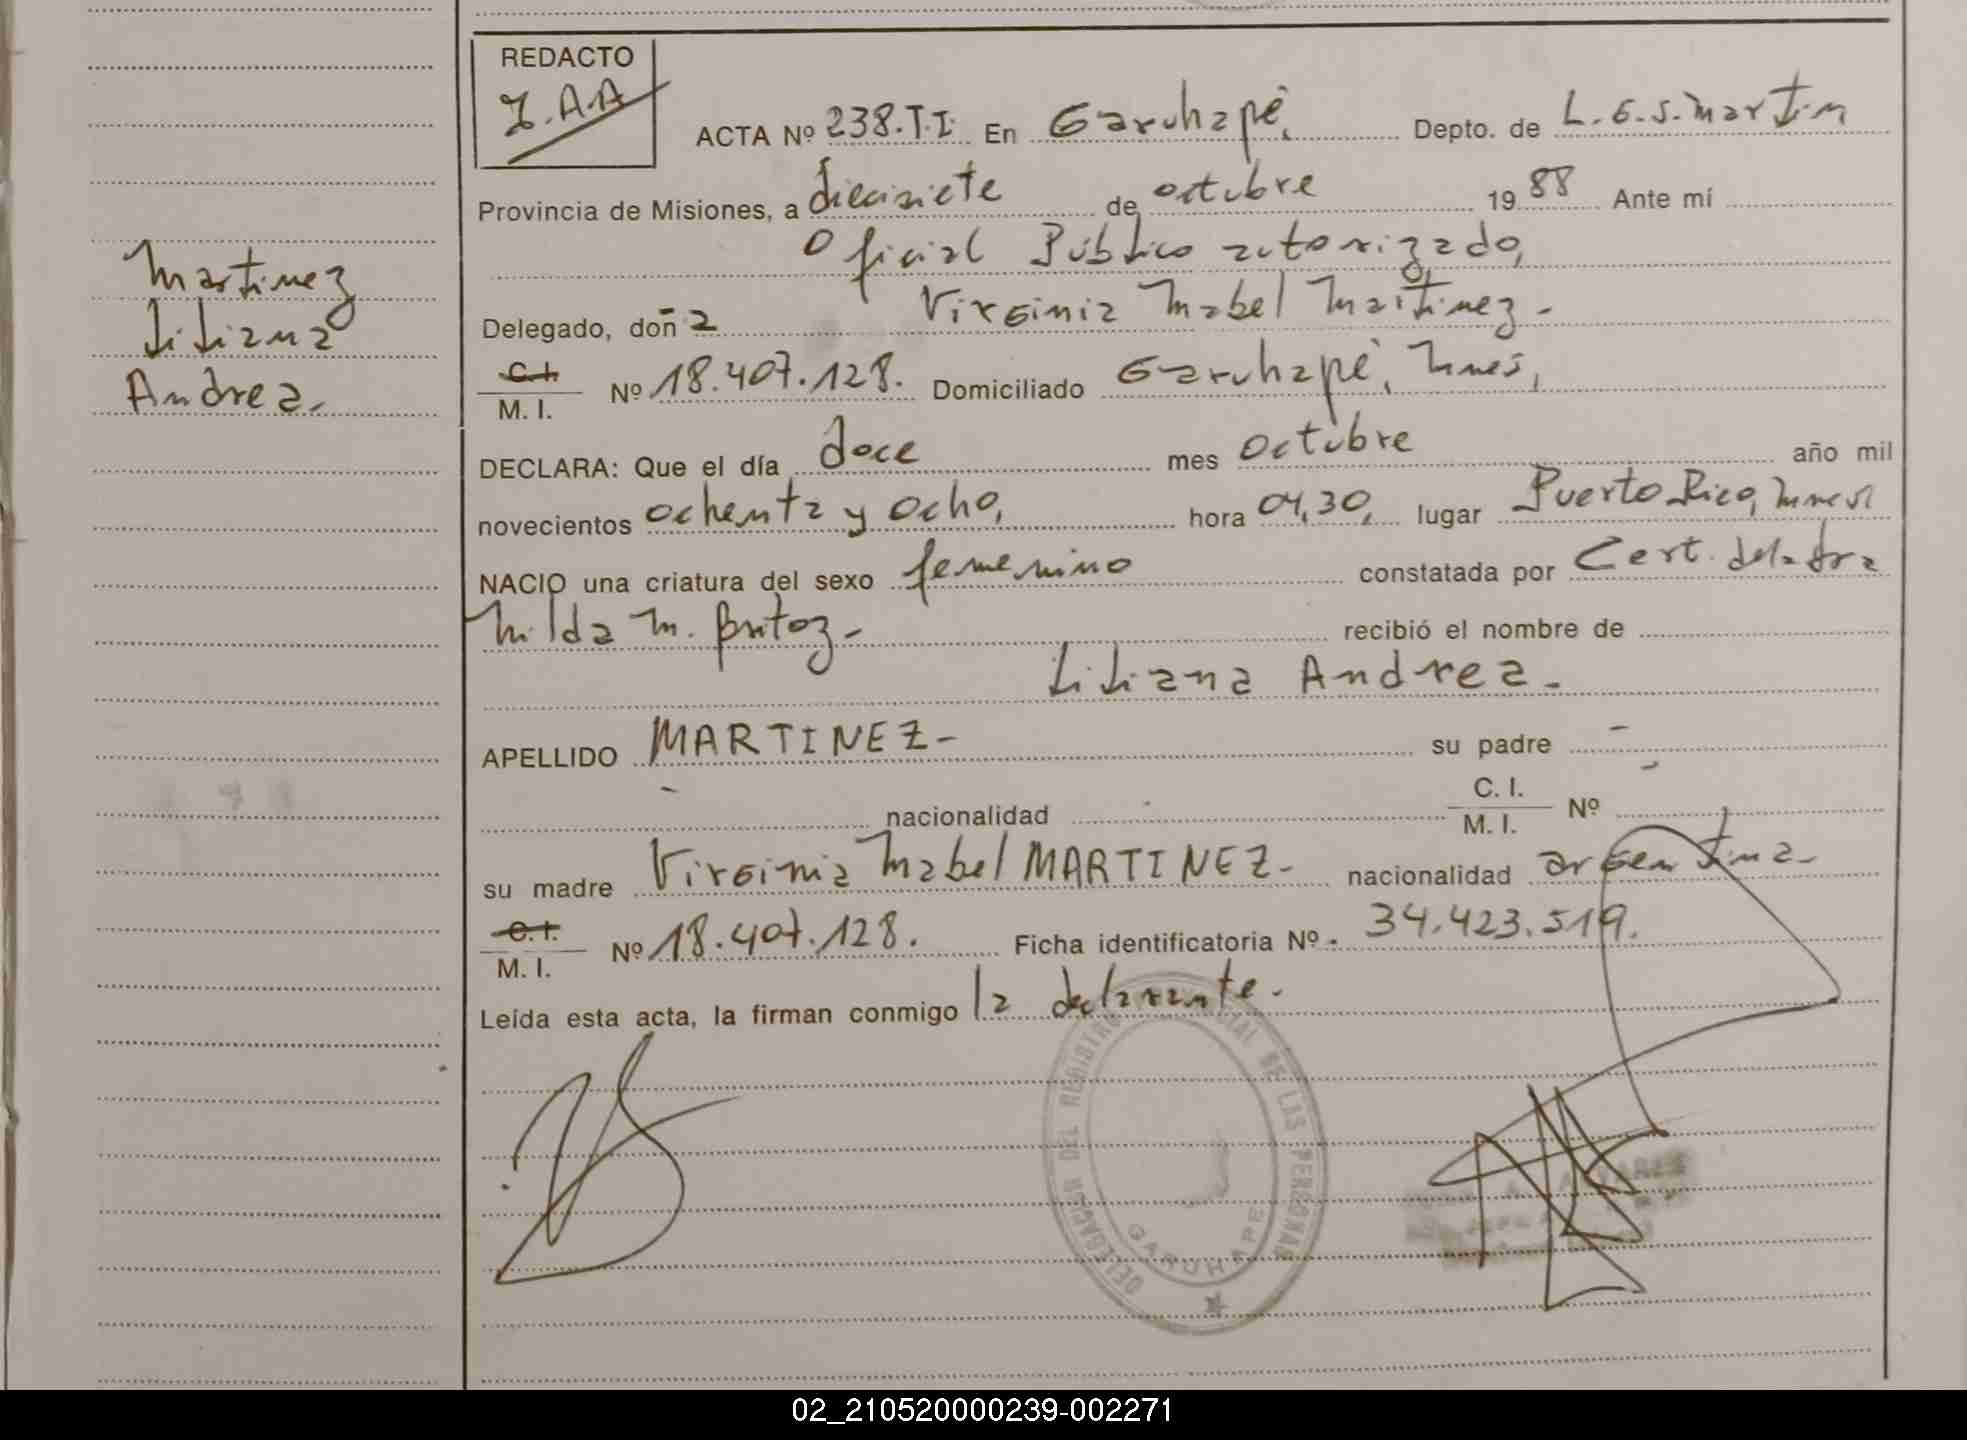 REDACTO
J.A.A
ACTA Nº 238.T.I. En Garuhapé, Depto. de L.G.S.Martin
Provincia de Misiones, a diecisiete de octubre 19 88 Ante mí
Oficial Público autorizado,
Delegado, doñ a Virginia Mabel Martinez.-
C.I. M. I. Nº 18.407.128. Domiciliado Garuhapé, Mnes,
DECLARA: Que el día doce mes octubre año mil
novecientos ochenta y ocho, hora 04,30, lugar Puerto Rico, Mnes
NACIO una criatura del sexo femenino constatada por Cert. de la dra
Nilda M. recibió el nombre de
Liliana Andrea.-
APELLIDO MARTINEZ- su padre -
- nacionalidad - C. I. M. I. Nº -
su madre Virginia Mabel MARTINEZ.- nacionalidad argentina.-
C.I. M. I. Nº 18.407.128. Ficha identificatoria Nº. 34.423.519.
Leída esta acta, la firman conmigo la declarante.-
Martinez
Liliana
Andrea.
DELEGACION DEL REGISTRO PROVINCIAL DE LAS PERSONAS
GARUHAPE
02_210520000239-002271